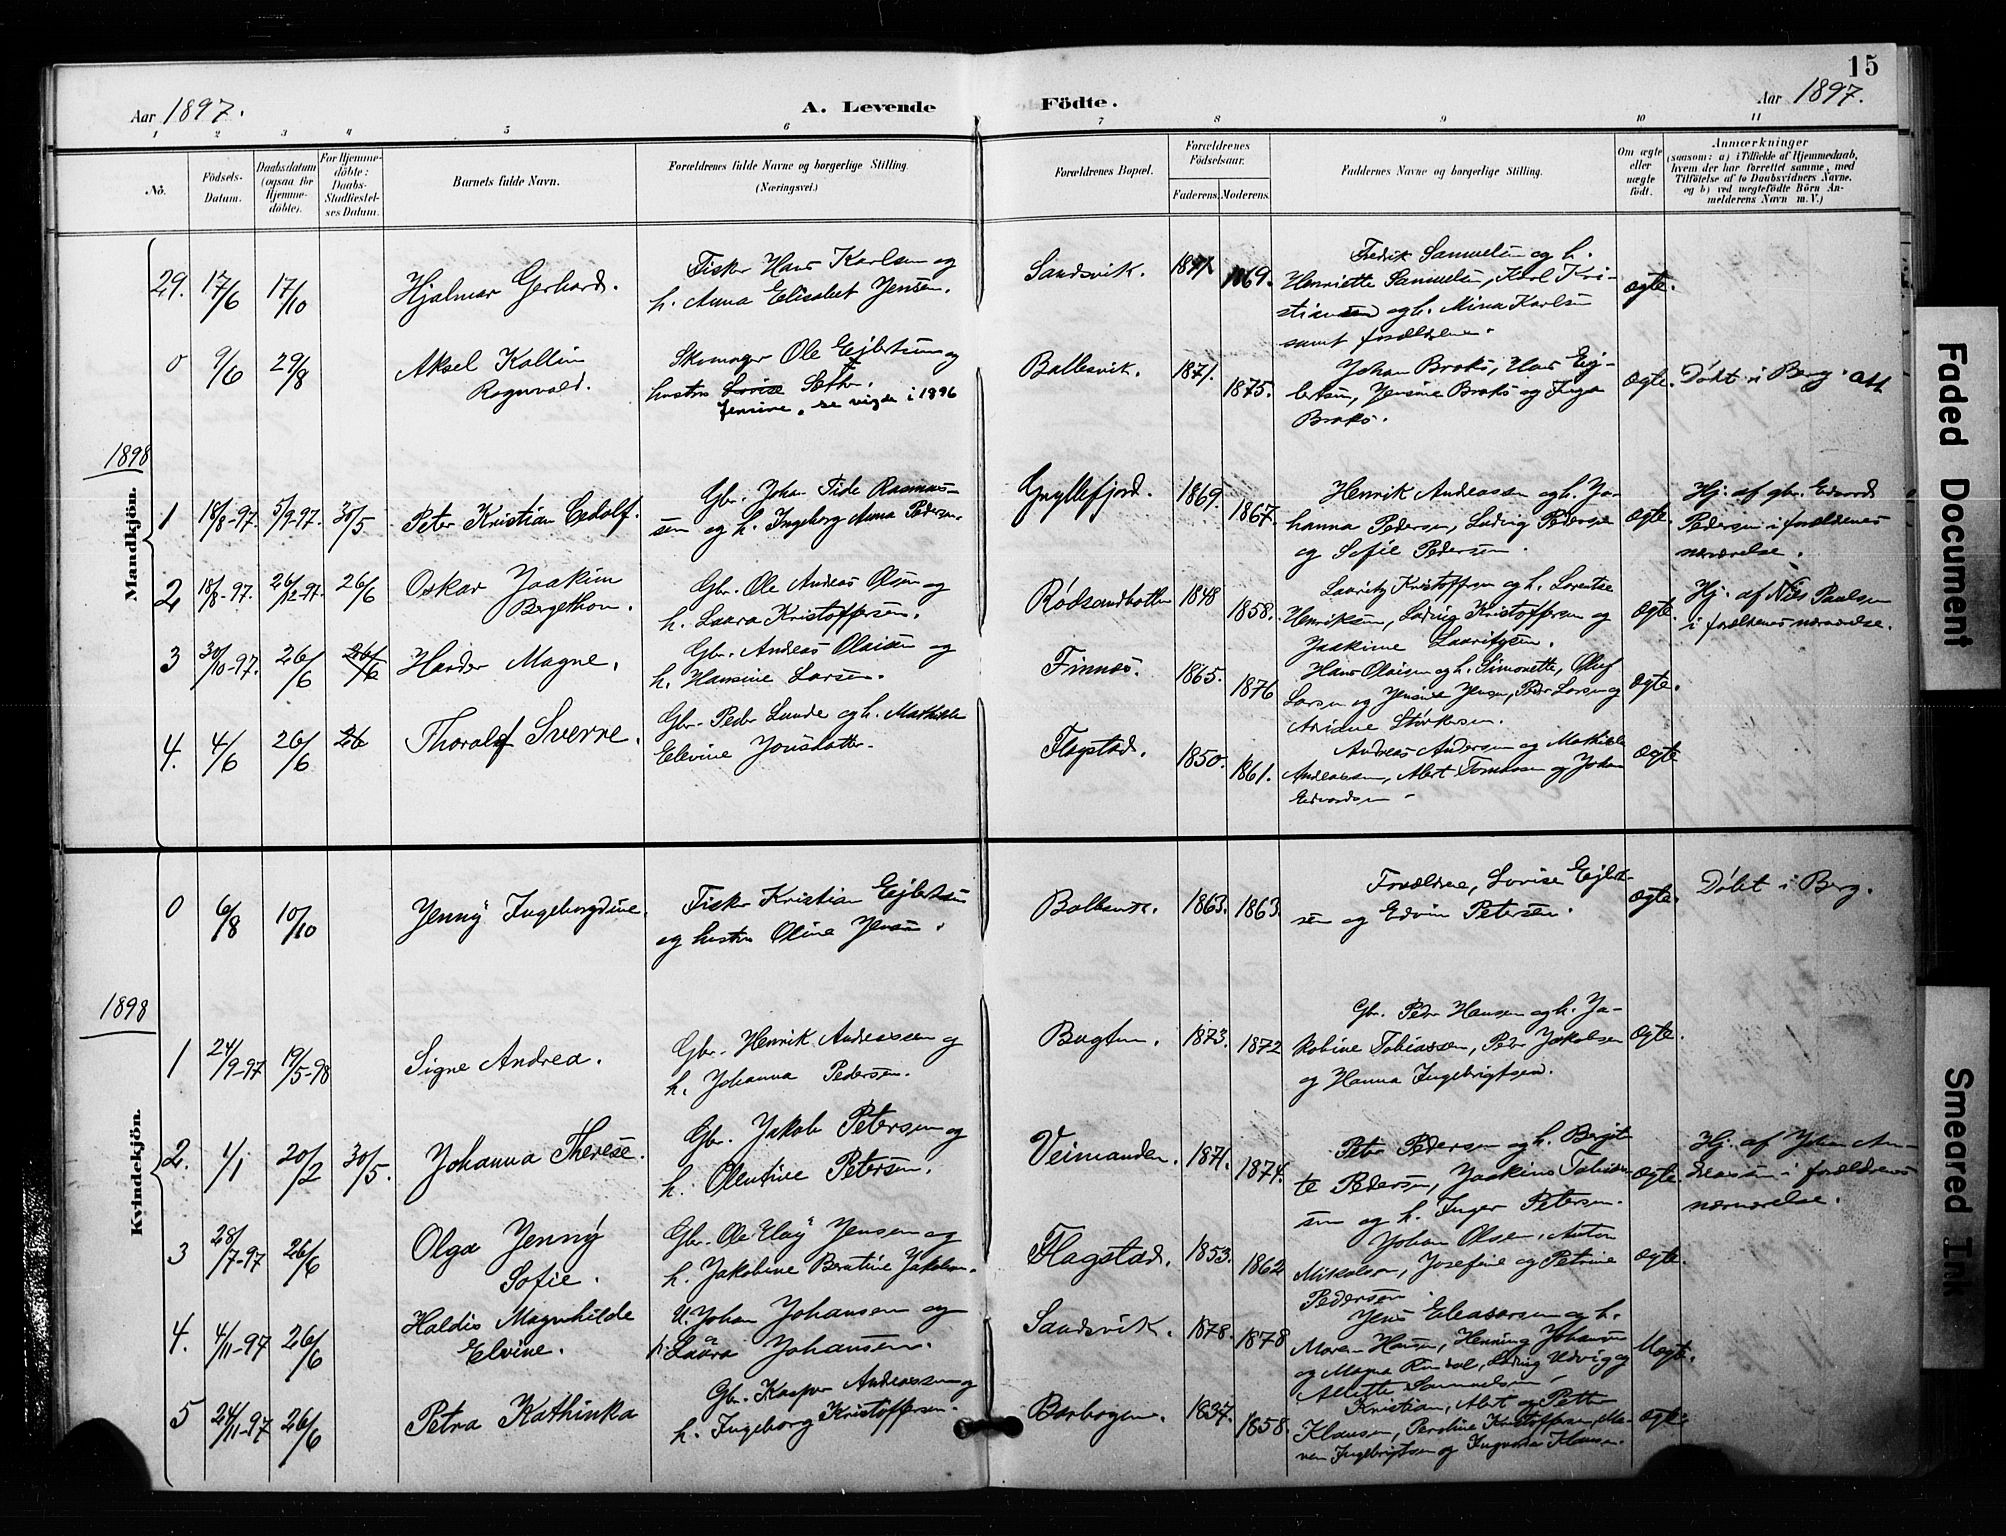 15
Aar 1897. A. Levende Födte. Aar 1897.
1 2 3 4 5 6 7 8 9 10 11
No. Födsels-Datum. Daabsdatum (ogsaa for Hjemme-döbte). For Hjemme-döbte: Daabs-Stadfæstel-ses Datum. Barnets fulde Navn. Forældrenes fulde Navne og borgerlige Stilling. (Næringsvei.) Forældrenes Bopæl. Forældrenes Födselsaar. Faderens. Moderens. Faddernes Navne og borgerlige Stilling. Om ægte eller uægte födt. Anmærkninger (saasom: a) i Tilfælde af Hjemmedaab, hvem der har forrettet samme, med Tilföielse af to Daabsvidners Navne, og b) ved uægtefödte Börn An-melderens Navn m. V.)
Mandkjön.
29. 17/6 17/10 Hjalmar Gerhard. Fisker Hans Karlsen og
h. Anna Elisabet Jensen. Sandsvik. 1871. 1869. Fredrik Samuelsen og h.
Henriette Samuelsen, Karl Kri-
stiansen og h. Mina Karlsen
samt forældrene. ægte.
0 9/6 29/8 Aksel Kollin
Ragnvald. Skomager Ole Ejlertsen og
hustru Lovise Seth.
Jensine, se vigde i 1896 Ballesvik. 1871. 1875. Johan Broks, Hans Ej-
lertsen, Jensine Broks og Inga
Broks. ægte. Døbt i Berg. att
1898
1 18/8-97. 5/9-97. 30/5 Peter Kristian Edolf. Gbr. Johan Tide Rasmus-
sen og h. Ingeborg Anna Pedersen. Gryllefjord. 1869. 1867. Henrik Andreassen og h. Jo-
hanna Pedersen, Ludvig Pedersen
og Sofie Pedersen. ægte. Hj. af gbr. Edvard
Pedersen i forældrenes
nærværelse.
2 18/8-97. 26/12-97. 26/6 Oskar Joakim
Bergethon. Gbr. Ole Andreas Olsen og
h. Laura Kristoffersen. Rødsandbotten 1848 1858. Lauritz Kristoffersen og h. Lorentse
Henriksen, Ludvig Kristoffersen og
Joakime Lauritzsen. ægte. Hj. af Nils Paulsen
i forældrenes nærværelse.
3 30/10-97. 26/6 26/6 Harder Magne. Gbr. Andreas Olaisen og
h. Hansine Larsen. Finnes. 1865. 1876 Hans Olaisen og h. Simonette, Oluf
Larsen og Jensine Jensen, Peder Larsen og
Ariane Størkersen. ægte.
4. 4/6 26/6 26 Thoralf Sverre. Gbr. Peder Lunde og h. Mathilde
Elevine Jonsdatter. Flagstad. 1850. 1861. Andreas Andersen og Mathilde
Andreassen, Albert Tomassen og Johan
Edvardsen. ægte
Kvindekjön.
0 6/8 10/10 Jenny Ingeborgdine. Fisker Kristian Ejlertsen
og hustru Oline Jensen. Ballesvik. 1863. 1863. Forældrene, Lovise Ejlert-
sen og Edvin Petersen. ægte. Døbt i Berg.
1898
1 24/9-97 19/5-98 Signe Andrea. Gbr. Henrik Andreassen og
h. Johanna Pedersen. Bugten. 1873. 1872 Gbr. Peder Hansen og h. Ja-
kobine Tobiassen, Peder Jakobsen
og Hanna Ingebrigtsen. ægte.
2. 1/1 20/2 30/5. Johanna Therese. Gbr. Jakob Petersen og
h. Olentine Petersen. Veimanden. 1871. 1874. Peter Pedersen og h. Bergit-
te Pedersen, Joakim Tobias-
sen og h. Inger Petersen. ægte. Hj. af Johan An-
dreassen i forældrenes
nærværelse.
3 28/7-97 26/6 Olga Jenny
Sofie. Gbr. Ole Elay Jensen og
h. Jakobine Beratine Jakobsen. Flagstad. 1853. 1862 Johan Olsen, Anton
Mikalsen, Josefine og Petrine
Pedersen. ægte.
4. 4/11-97 26/6 Haldis Magnhilde
Elvine. U. Johan Johansen og
p. Laura Johansen. Sandsvik. 1878. 1878 Jens Eleasersen og h.
Maren Hansen, Henning Johansen
og Magna Rindal, Ludvig Udvig og
Alette Samuelsen. Uægte.
5 24/11-97 26/6 Petra Kathinka Gbr. Kasper Andreassen og
h. Ingeborg Kristoffersen. Barbogen. 1837. 1858. Kristian, Albert og Petter
Klausen, Peroline Kristoffersen, Ma-
ren Ingebrigtsen og Ingvarda Klausen. ægte.
Faded Document
Smeared Ink